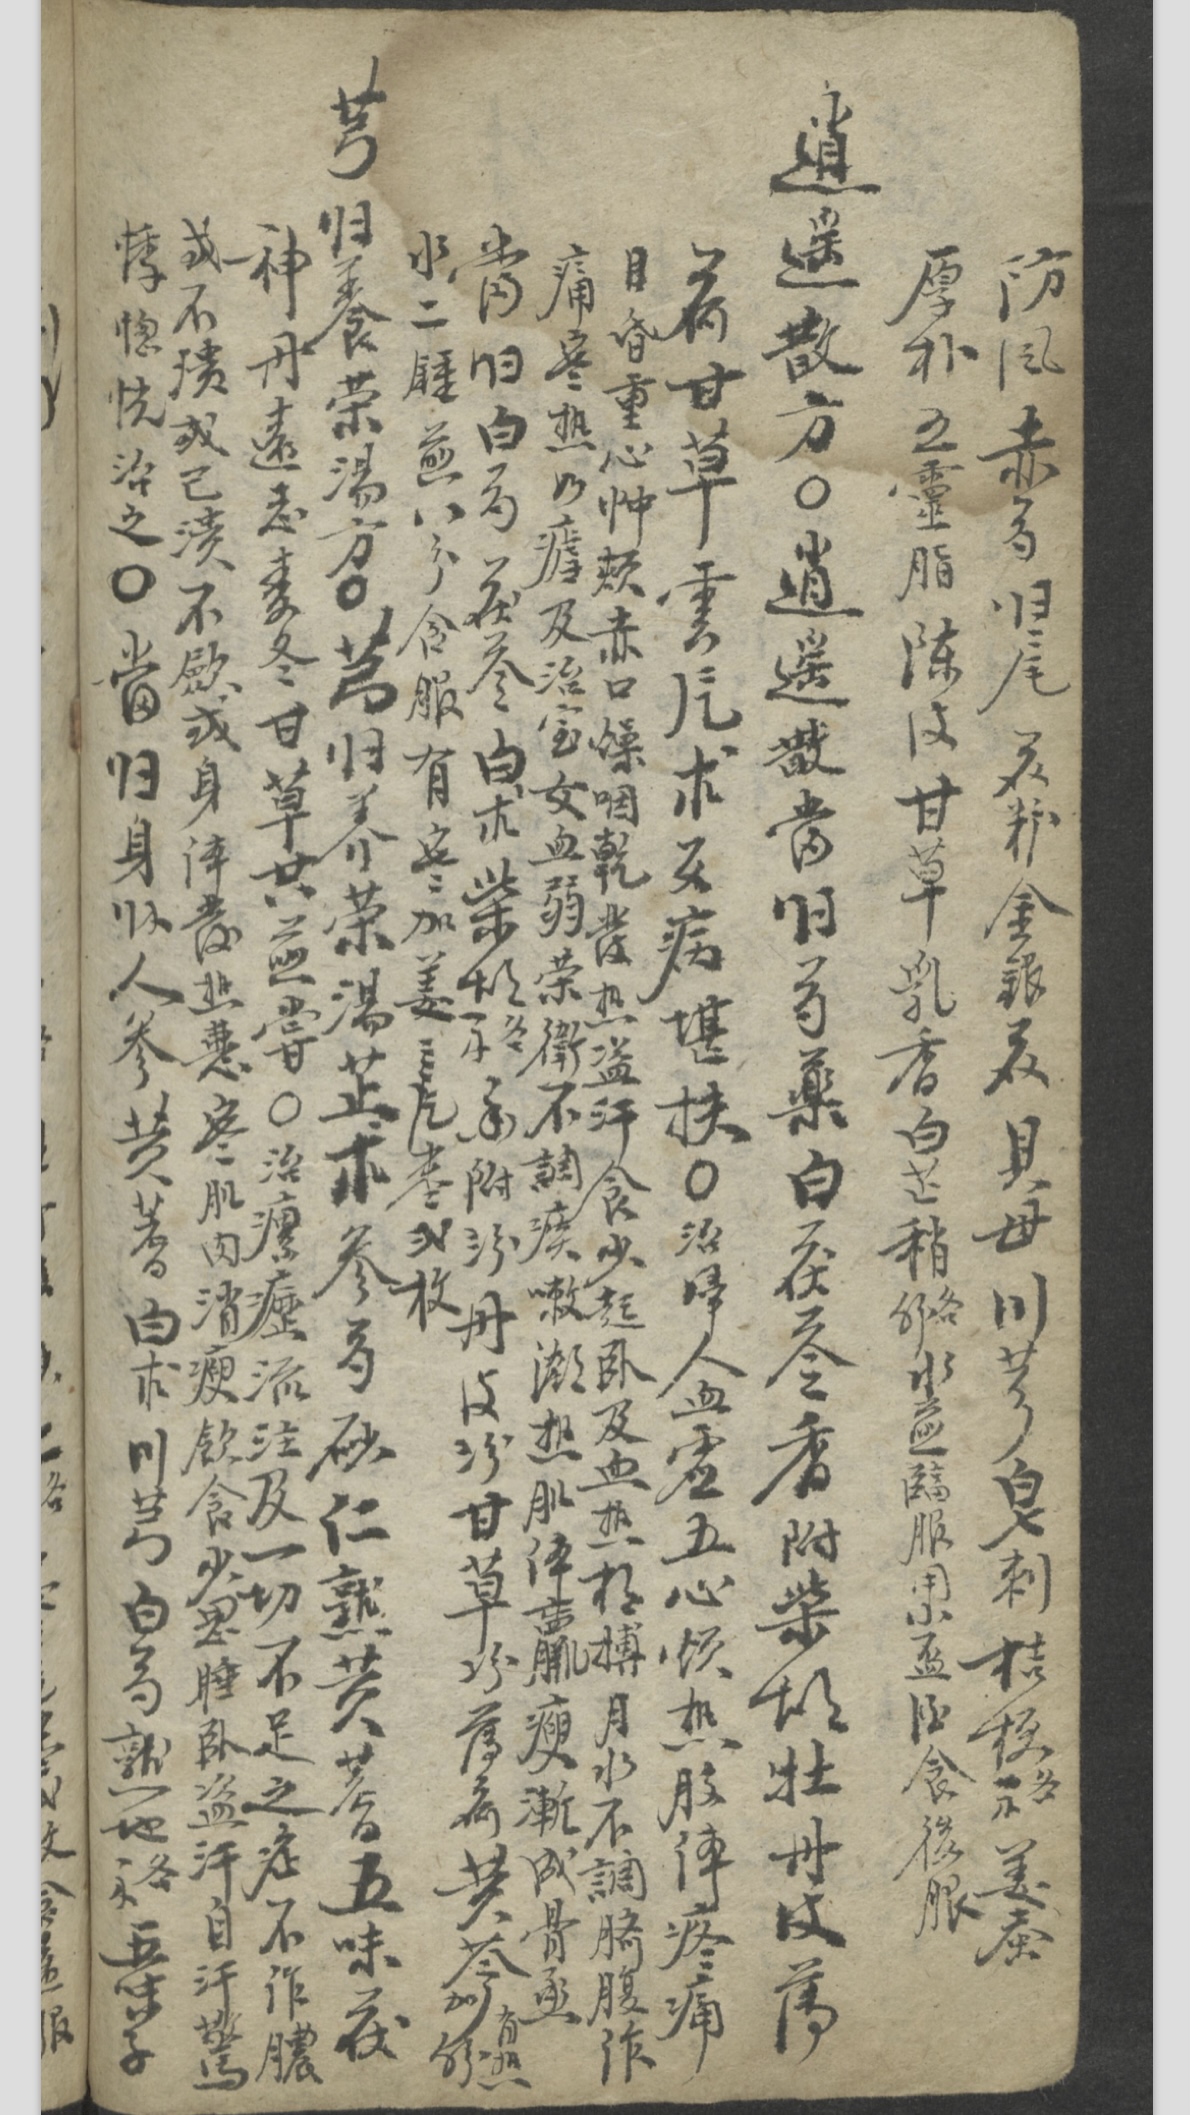 防风赤芍归尾花粉金銀花貝母川芎皂刺桔梗各不姜蚕
厚朴五靈脂陈皮甘草乳香白芷稍各水煎臨服用水盃酒食後服
逍遥散方〇逍遥散當归芍藥白茯苓香附柴胡牡丹皮薄
荷甘草雲片求女病堪扶〇治婦人血虚五心煩热肢体疼痛
目昏重心忡頰赤口燥咽乾發热盗汗食少起卧及血热相搏月水不調臍腹作
痛寒热如瘧及治室女血弱荣衛不調痰嗽潮热肌体羸瘦漸成骨蒸
當归白芍茯苓白求柴胡各香附丹皮甘草薄荷黄芩有热加
水二鍾煎八分食服有寒加姜三片枣弍枚
芎归養荣湯方〇芎归养荣湯芷求參芍砂仁熟黄蓍五味茯
神丹遠志麦冬甘草共煎嘗〇治瘰癧流注及一切不足之症不作膿
或不潰或已潰不歛或身体發热惡寒肌肉消瘦飲食少思睡卧盗汗自汗驚
悸惚恍治之〇當归身人參黄蓍白求川芎白芍熟地各五味子